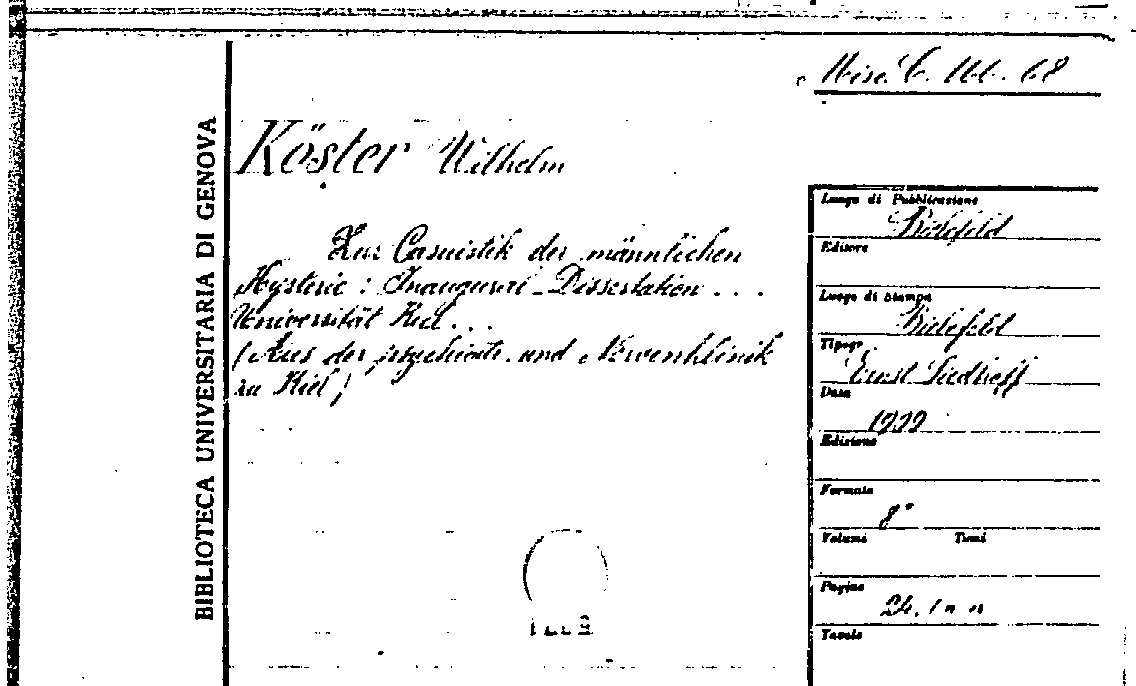 Misc. C. 166. 68
BIBLIOTECA UNIVERSITARIA DI GENOVA
Köster Wilhelm
Zur Casuistik der männlichen
Hysterie : Inaugural-Dissertation ...
Universität Kiel ...
(Aus der psychiatr. und Nervenklinik
zu Kiel)
Luogo di Pubblicazione
Bielefeld
Editore
Luogo di Stampa
Bielefeld
Tipogr.
Ernst Siedhoff
Data
Edizione
Formato
8°
Volumi Tomi
Pagine
24,
Tavole